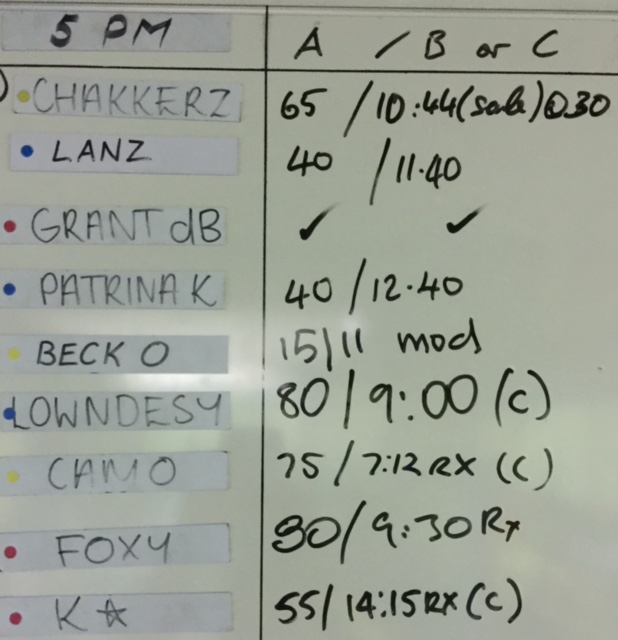 5 PM A / B or C
CHAKKERZ 65 / 10:44 @30
LANZ 40 / 11.40
GRANT dB ✓ ✓
PATRINA K 40 / 12.40
BECK O 15 / 11 mod
LOWNDESY 80 / 9:00 (C)
CAM O 75 / 7:12 RX (C)
FOXY / 9:30 Rx
K☆ 55 / 14:15 RX (C)